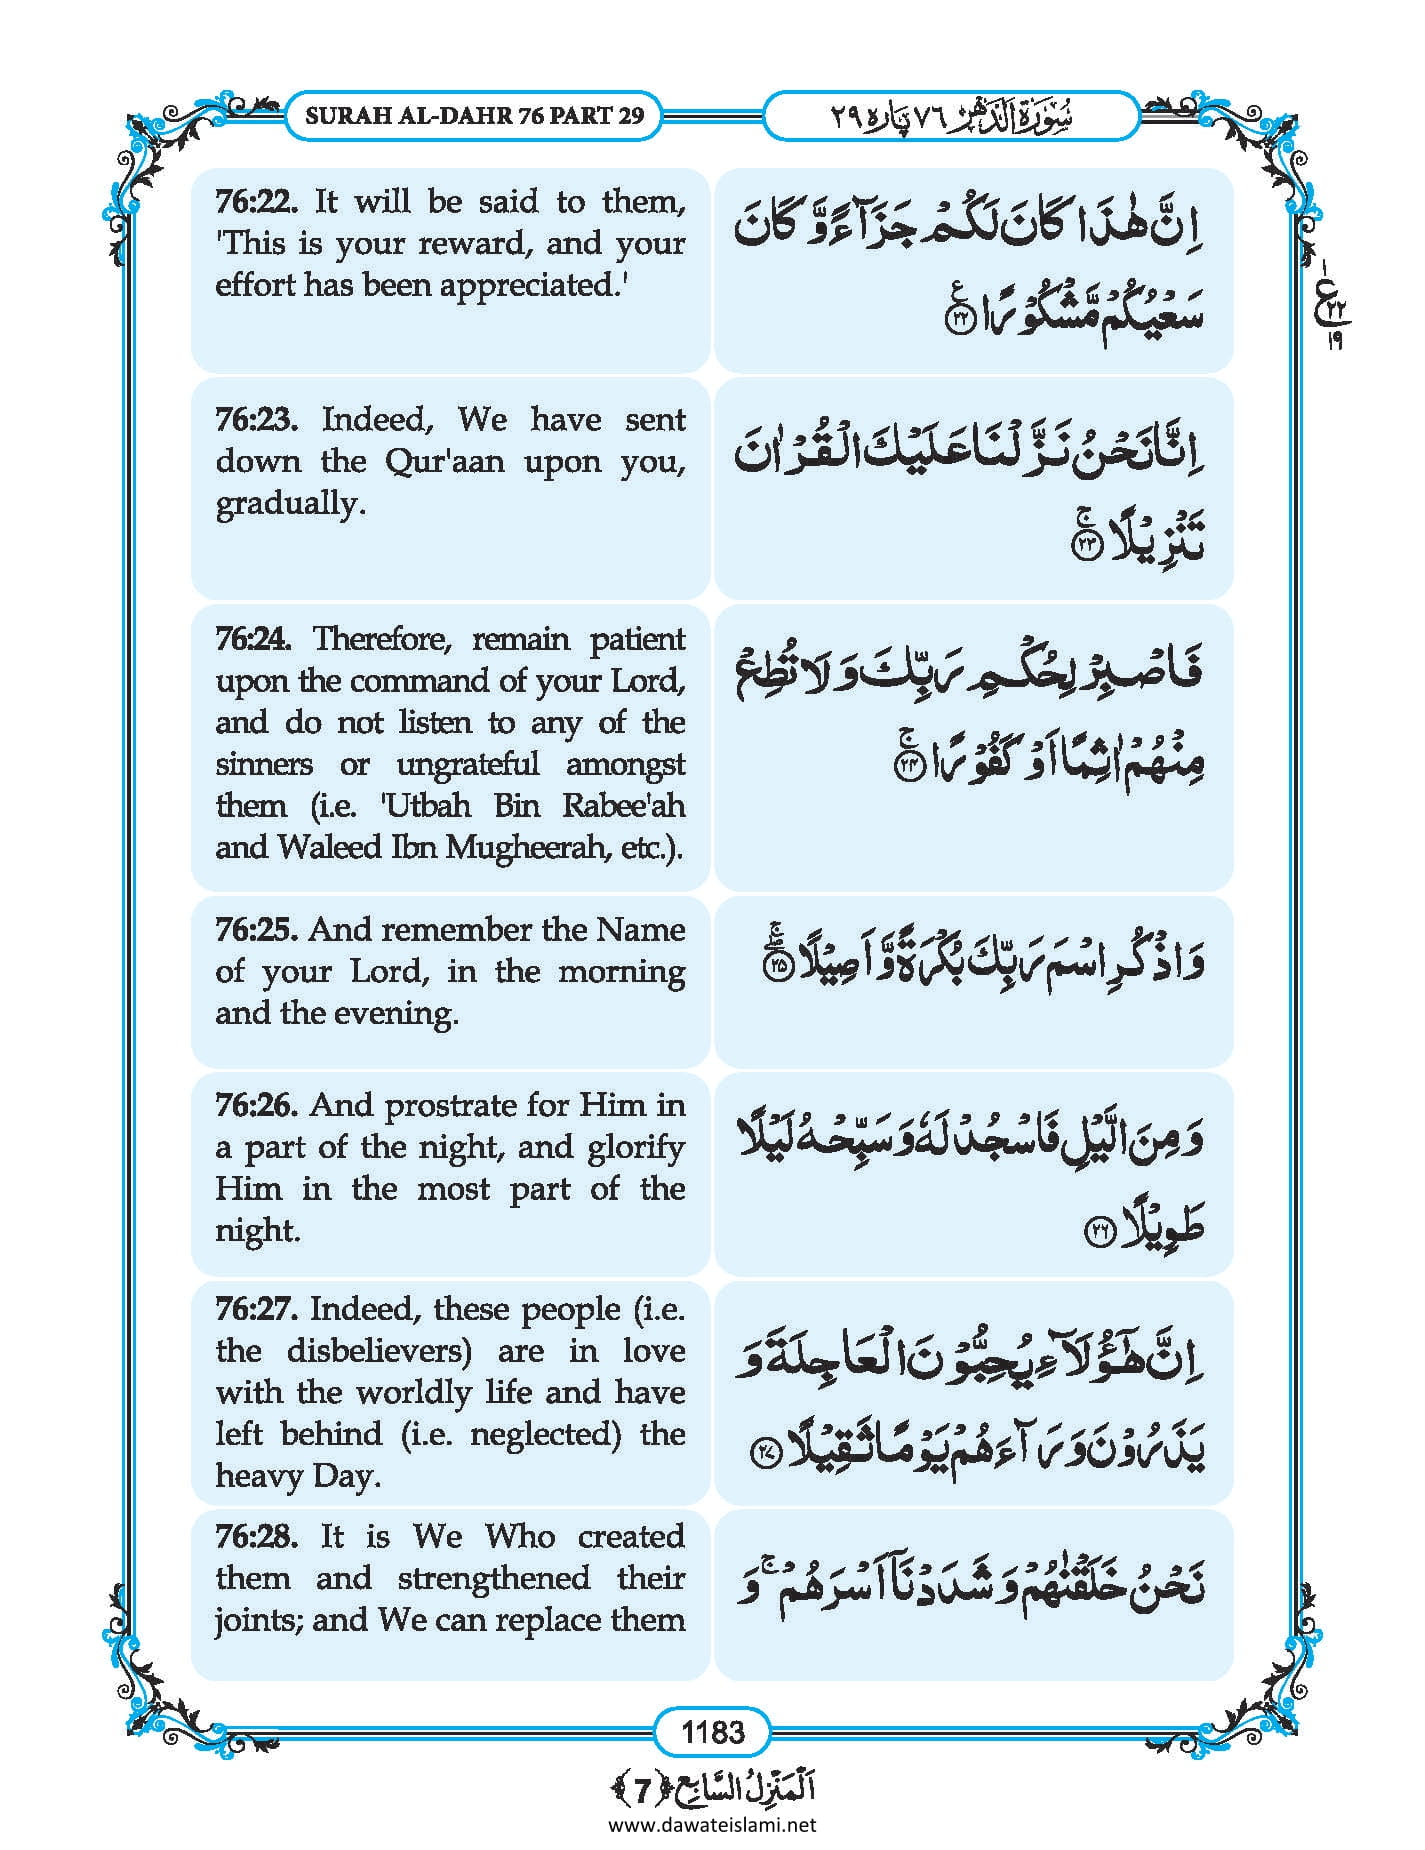 SURAH AL-DAHR 76 PART 29
سُوْرَةُ الدَّهْر ٧٦ پاره ٢٩
76:22. It will be said to them,
'This is your reward, and your
effort has been appreciated.'
اِنَّ هٰذَا كَانَ لَكُمْ جَزَآءً وَّ كَانَ
سَعْیُكُمْ مَّشْكُوْرًا ﴿۲۲﴾
ع
۱
۲۲
۱۹
76:23. Indeed, We have sent
down the Qur'aan upon you,
gradually.
اِنَّا نَحْنُ نَزَّلْنَا عَلَیْكَ الْقُرْاٰنَ
تَنْزِیْلًا ﴿۲۳﴾
76:24. Therefore, remain patient
upon the command of your Lord,
and do not listen to any of the
sinners or ungrateful amongst
them (i.e. 'Utbah Bin Rabee'ah
and Waleed Ibn Mugheerah, etc.).
فَاصْبِرْ لِحُكْمِ رَبِّكَ وَ لَا تُطِعْ
مِنْهُمْ اٰثِمًا اَوْ كَفُوْرًا ﴿۲۴﴾
76:25. And remember the Name
of your Lord, in the morning
and the evening.
وَ اذْكُرِ اسْمَ رَبِّكَ بُكْرَةً وَّ اَصِیْلًا ﴿۲۵﴾
76:26. And prostrate for Him in
a part of the night, and glorify
Him in the most part of the
night.
وَ مِنَ الَّیْلِ فَاسْجُدْ لَهٗ وَ سَبِّحْهُ لَیْلًا
طَوِیْلًا ﴿۲۶﴾
76:27. Indeed, these people (i.e.
the disbelievers) are in love
with the worldly life and have
left behind (i.e. neglected) the
heavy Day.
اِنَّ هٰۤؤُلَآءِ یُحِبُّوْنَ الْعَاجِلَةَ وَ
یَذَرُوْنَ وَرَآءَهُمْ یَوْمًا ثَقِیْلًا ﴿۲۷﴾
76:28. It is We Who created
them and strengthened their
joints; and We can replace them
نَحْنُ خَلَقْنٰهُمْ وَ شَدَدْنَاۤ اَسْرَهُمْ ۚ وَ
1183
اَلْمَنْزِلُ السَّابِع ﴿7﴾
www.dawateislami.net